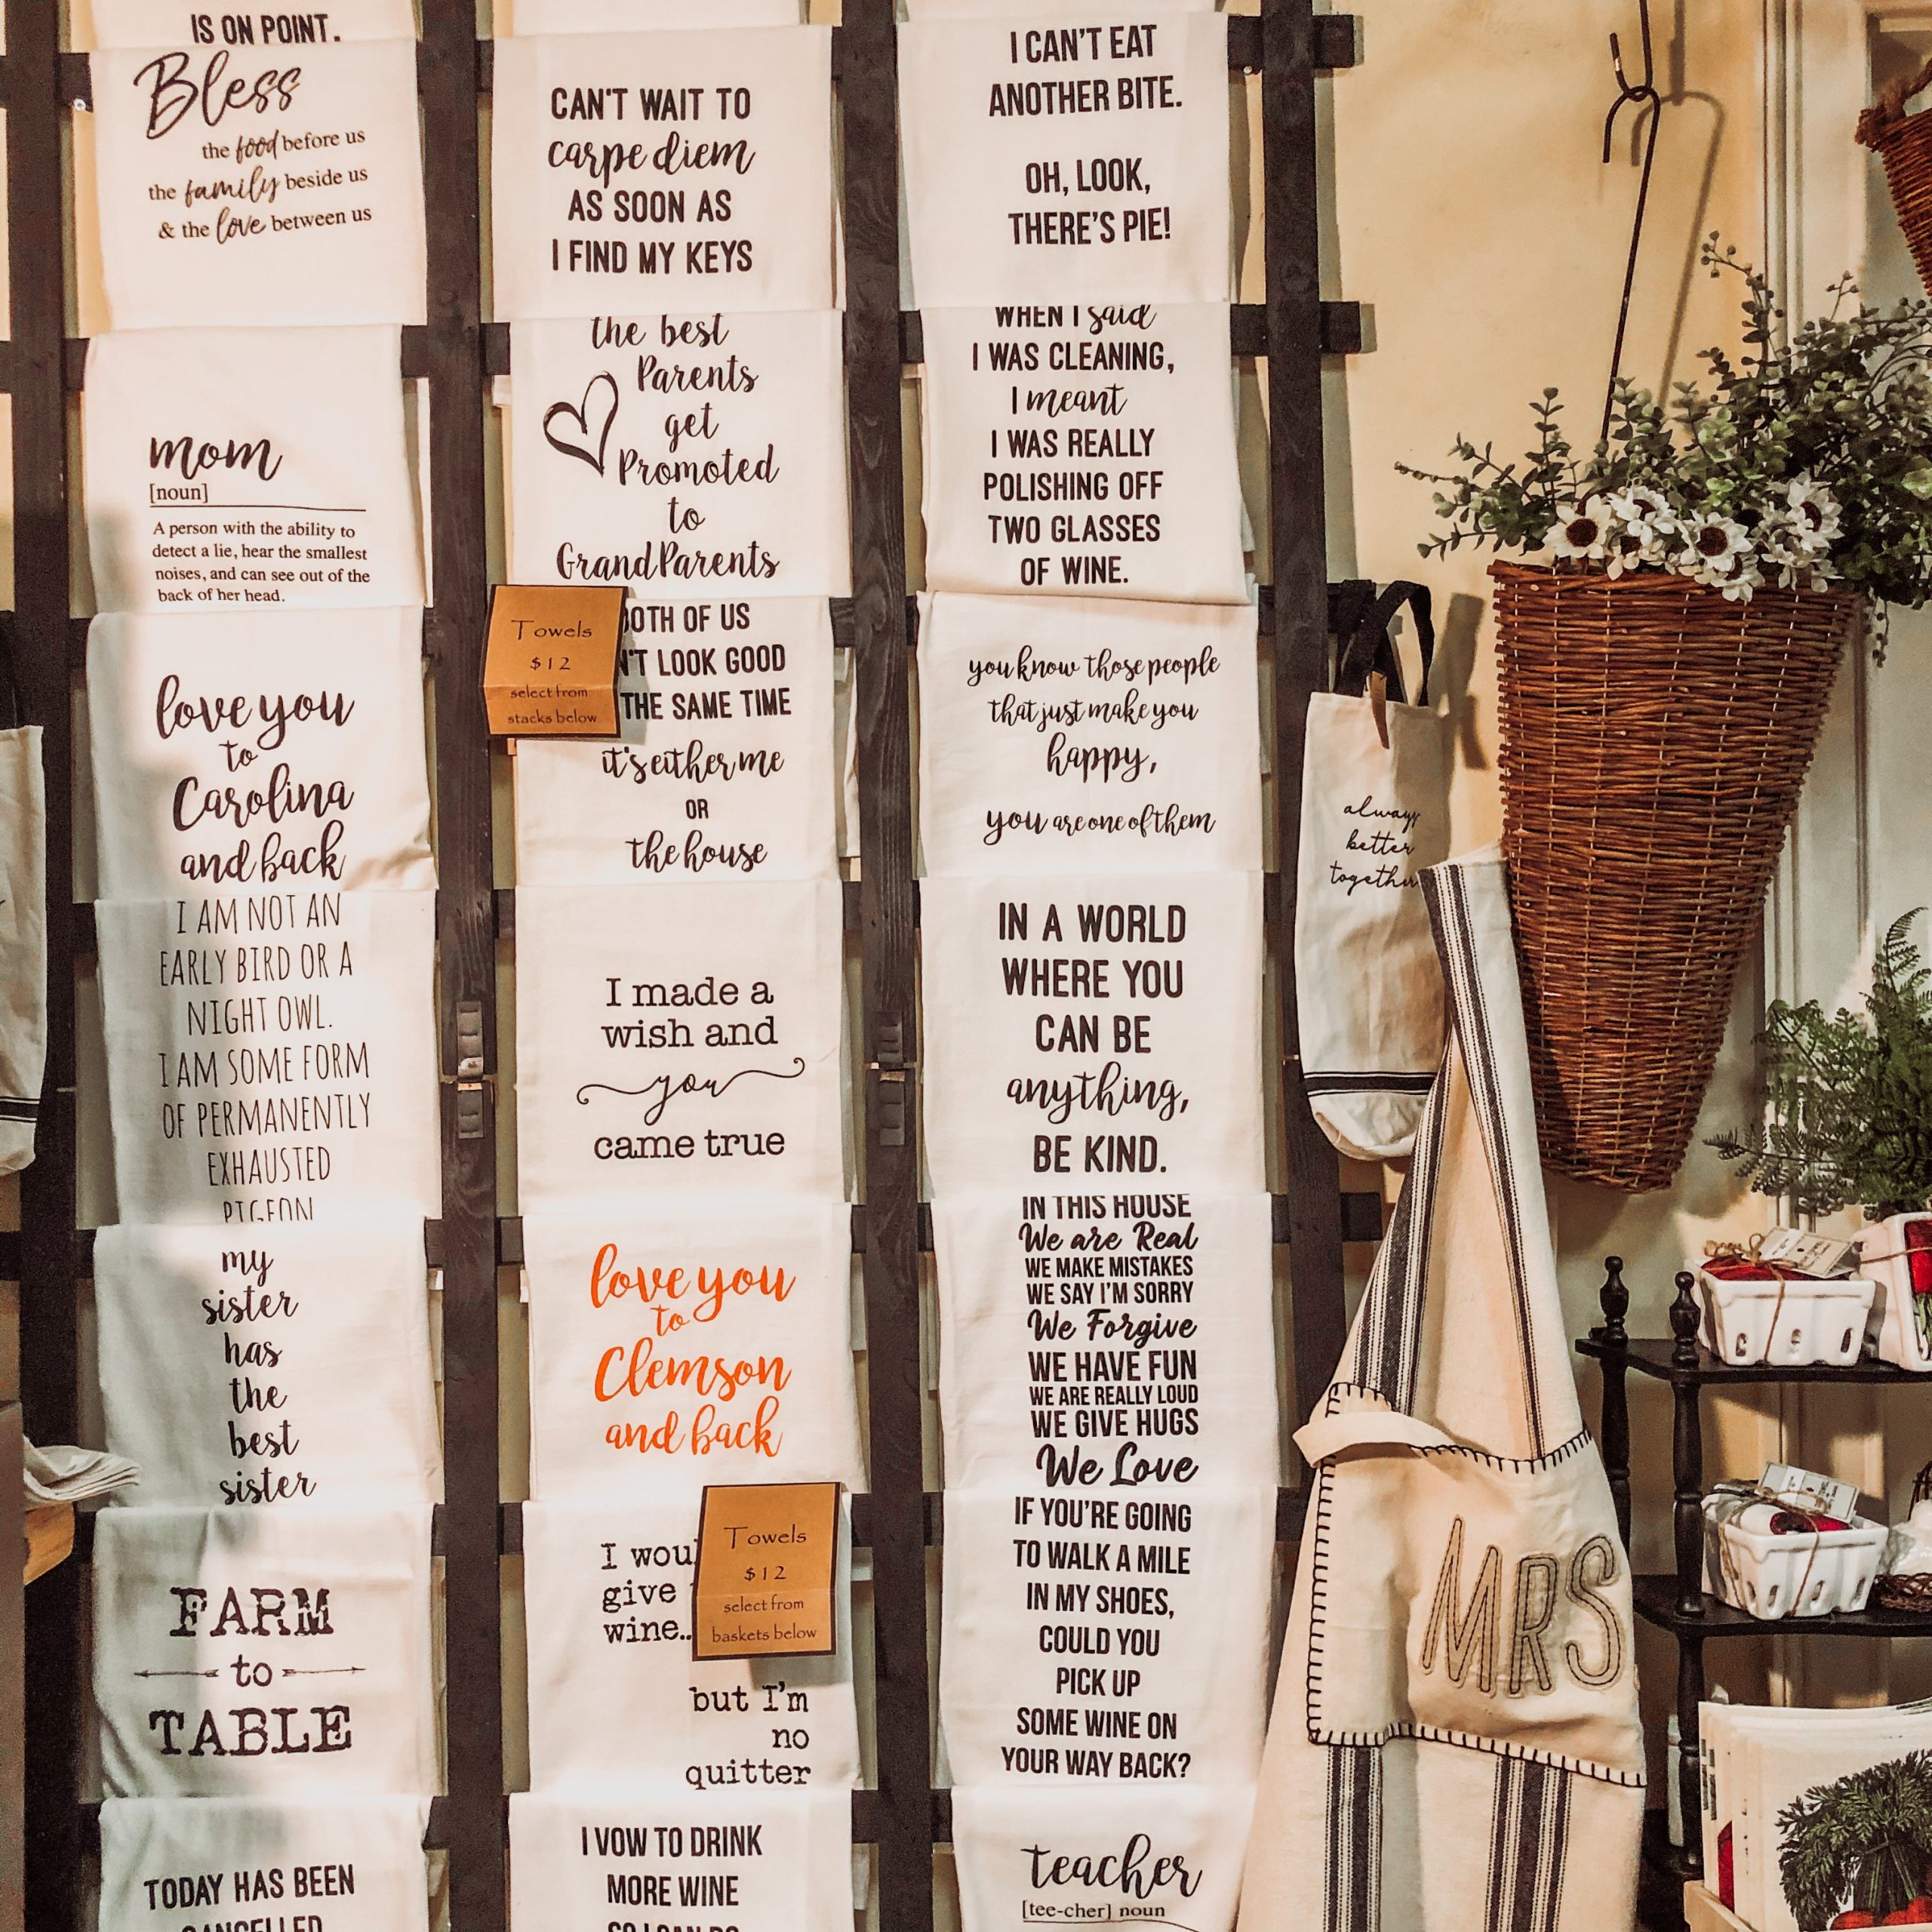 IS ON POINT.
Bless
the food before us
the family beside us
& the love between us
mom
[noun]
A person with the ability to
detect a lie, hear the smallest
noises, and can see out of the
back of her head.
love you
to
Carolina
and back
I AM NOT AN
EARLY BIRD OR A
NIGHT OWL.
I AM SOME FORM
OF PERMANENTLY
EXHAUSTED
PIGEON
my
sister
has
the
best
sister
FARM
to
TABLE
TODAY HAS BEEN
CANCELLED
CAN'T WAIT TO
carpe diem
AS SOON AS
I FIND MY KEYS
the best
Parents
get
Promoted
to
GrandParents
Towels
$12
select from
stacks below
OTH OF US
N'T LOOK GOOD
THE SAME TIME
it's either me
OR
the house
I made a
wish and
you
came true
love you
to
Clemson
and back
I woul
give
wine..
but I'm
no
quitter
Towels
$12
select from
baskets below
I VOW TO DRINK
MORE WINE
SO I CAN DO
I CAN'T EAT
ANOTHER BITE.
OH, LOOK,
THERE'S PIE!
WHEN I said
I WAS CLEANING,
I meant
I WAS REALLY
POLISHING OFF
TWO GLASSES
OF WINE.
you know those people
that just make you
happy,
you are one of them
IN A WORLD
WHERE YOU
CAN BE
anything,
BE KIND.
IN THIS HOUSE
We are Real
WE MAKE MISTAKES
WE SAY I'M SORRY
We Forgive
WE HAVE FUN
WE ARE REALLY LOUD
WE GIVE HUGS
We Love
IF YOU'RE GOING
TO WALK A MILE
IN MY SHOES,
COULD YOU
PICK UP
SOME WINE ON
YOUR WAY BACK?
teacher
[tee-cher] noun
always
better
together
MRS